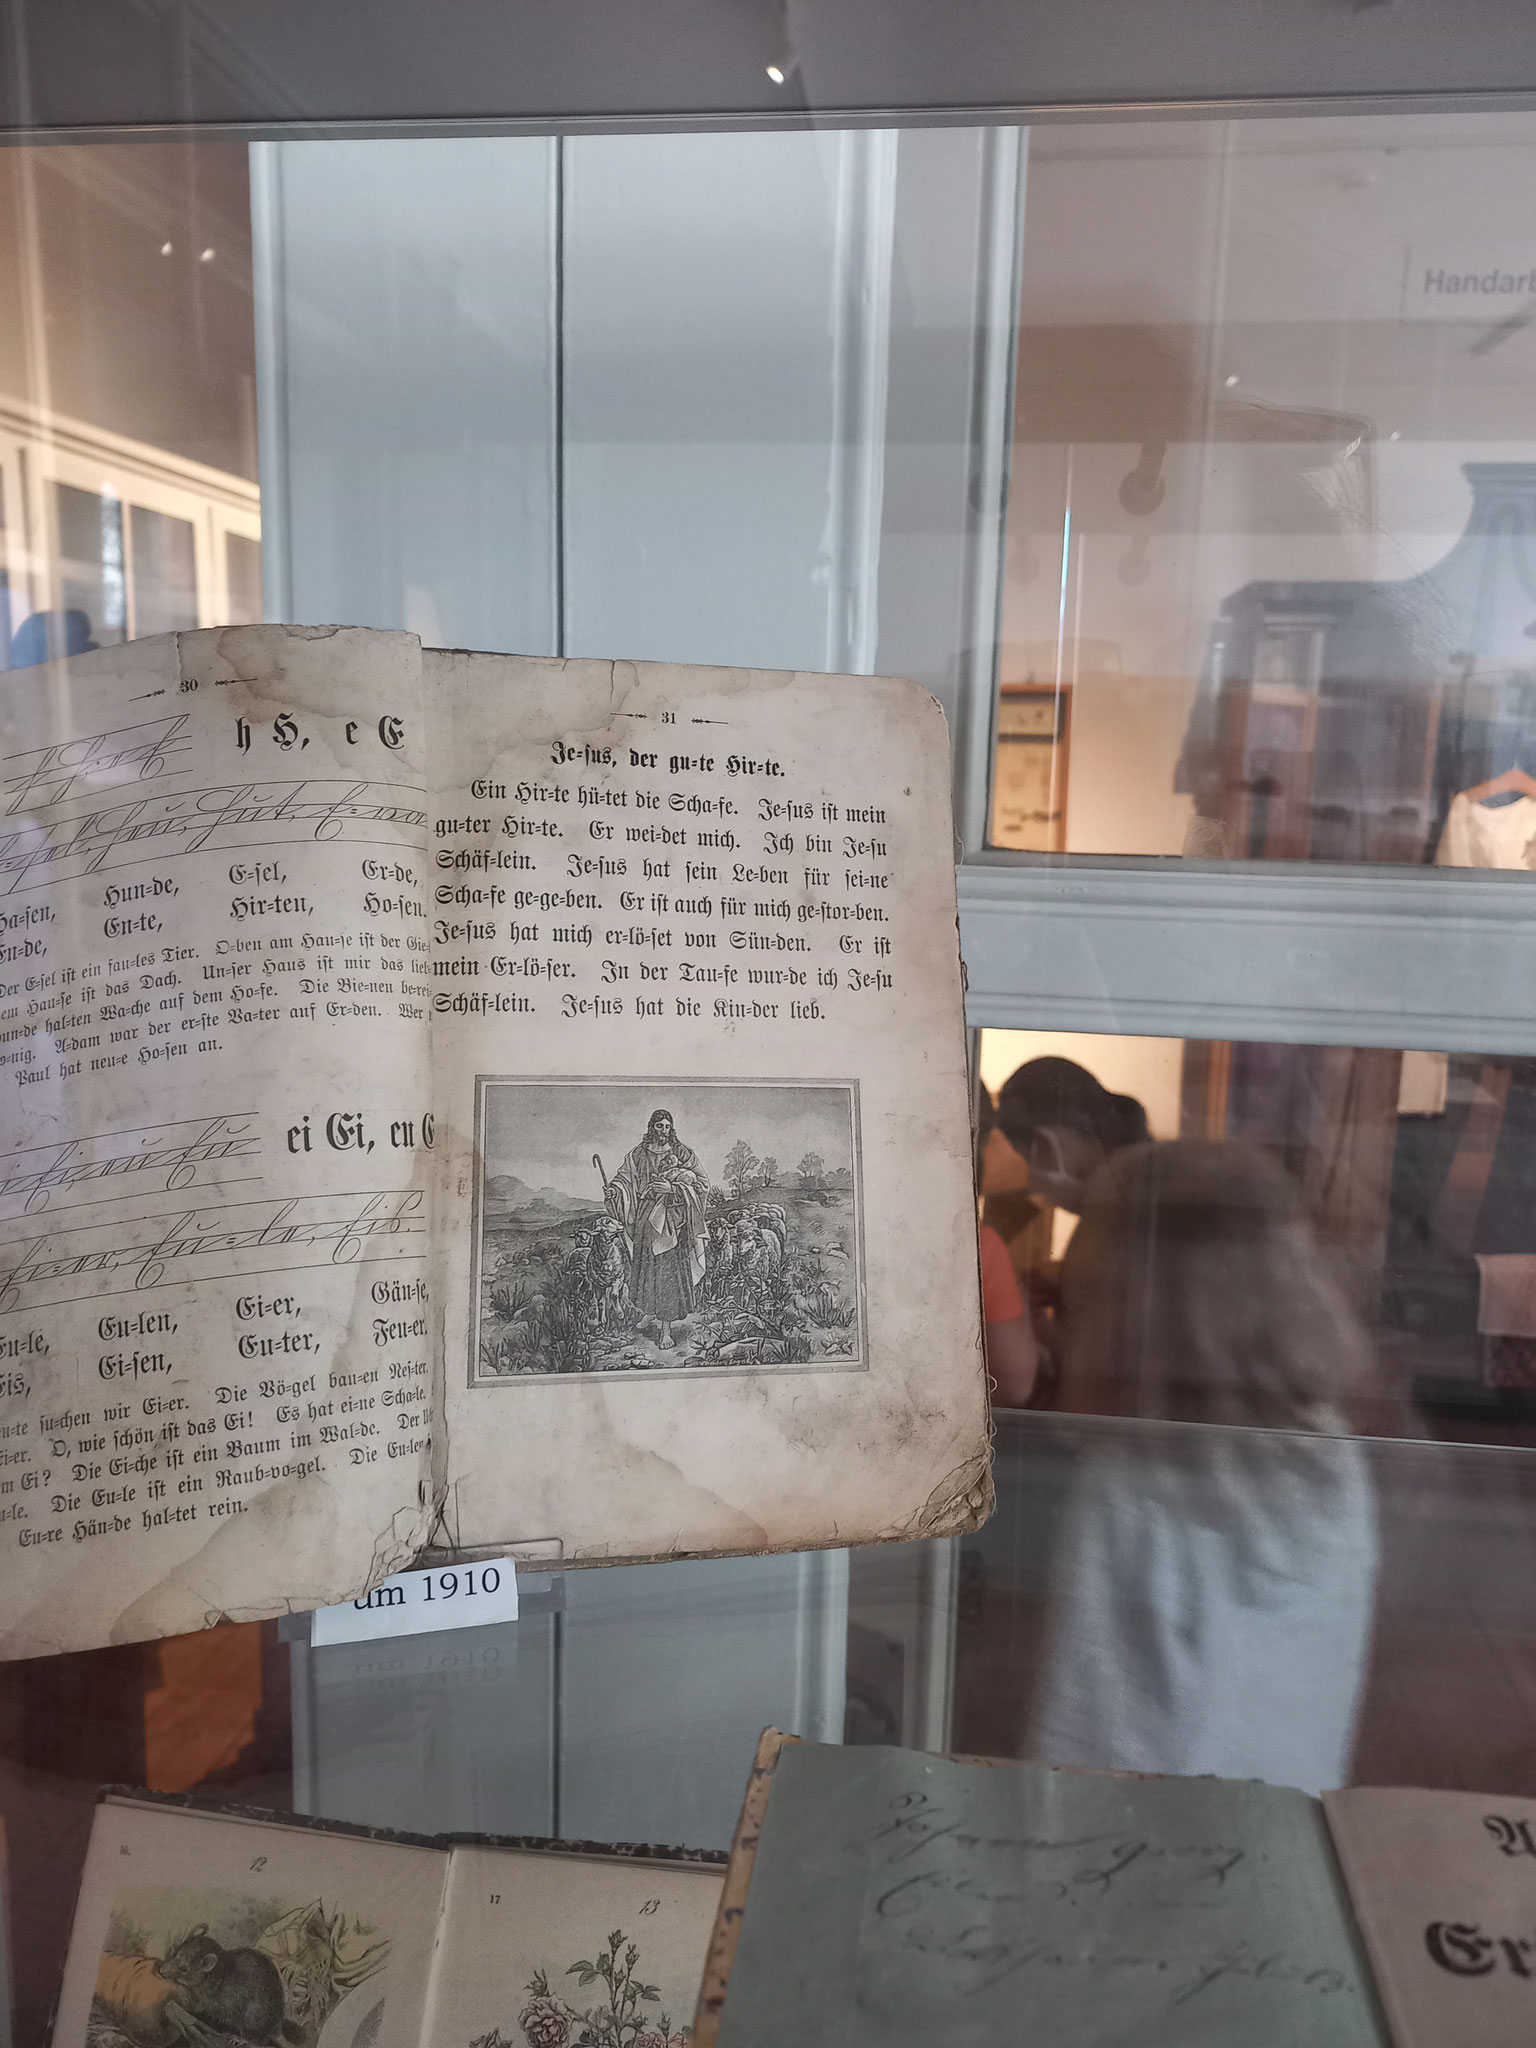 Handarb
30
h H, e E
Hun=de, E=sel, Er=de,
Ha=sen, En=te, Hir=ten, Ho=sen.
Der E=sel ist ein fau=les Tier. O=ben am Hau=se ist der Gie=
dem Hau=se ist das Dach. Un=ser Haus ist mir das lieb=
hal=ten Wa=che auf dem Ho=fe. Die Bie=nen be=rei=
A=dam war der er=ste Va=ter auf Er=den. Wer
Paul hat neu=e Ho=sen an.
ei Ei, eu E
Eu=le, Eu=len, Ei=er, Gän=se,
Eis, Ei=sen, Eu=ter, Feu=er.
su=chen wir Ei=er. Die Vö=gel bau=en Nes=ter.
O, wie schön ist das Ei! Es hat ei=ne Scha=le.
Ei? Die Ei=che ist ein Baum im Wal=de. Der
Die Eu=le ist ein Raub=vo=gel. Die Eu=len
Eu=re Hän=de hal=tet rein.
31
Je=sus, der gu=te Hir=te.
Ein Hir=te hü=tet die Scha=fe. Je=sus ist mein
gu=ter Hir=te. Er wei=det mich. Ich bin Je=su
Schäf=lein. Je=sus hat sein Le=ben für sei=ne
Scha=fe ge=ge=ben. Er ist auch für mich ge=stor=ben.
Je=sus hat mich er=lö=set von Sün=den. Er ist
mein Er=lö=ser. In der Tau=fe wur=de ich Je=su
Schäf=lein. Je=sus hat die Kin=der lieb.
um 1910
16.
12
17
13
Er